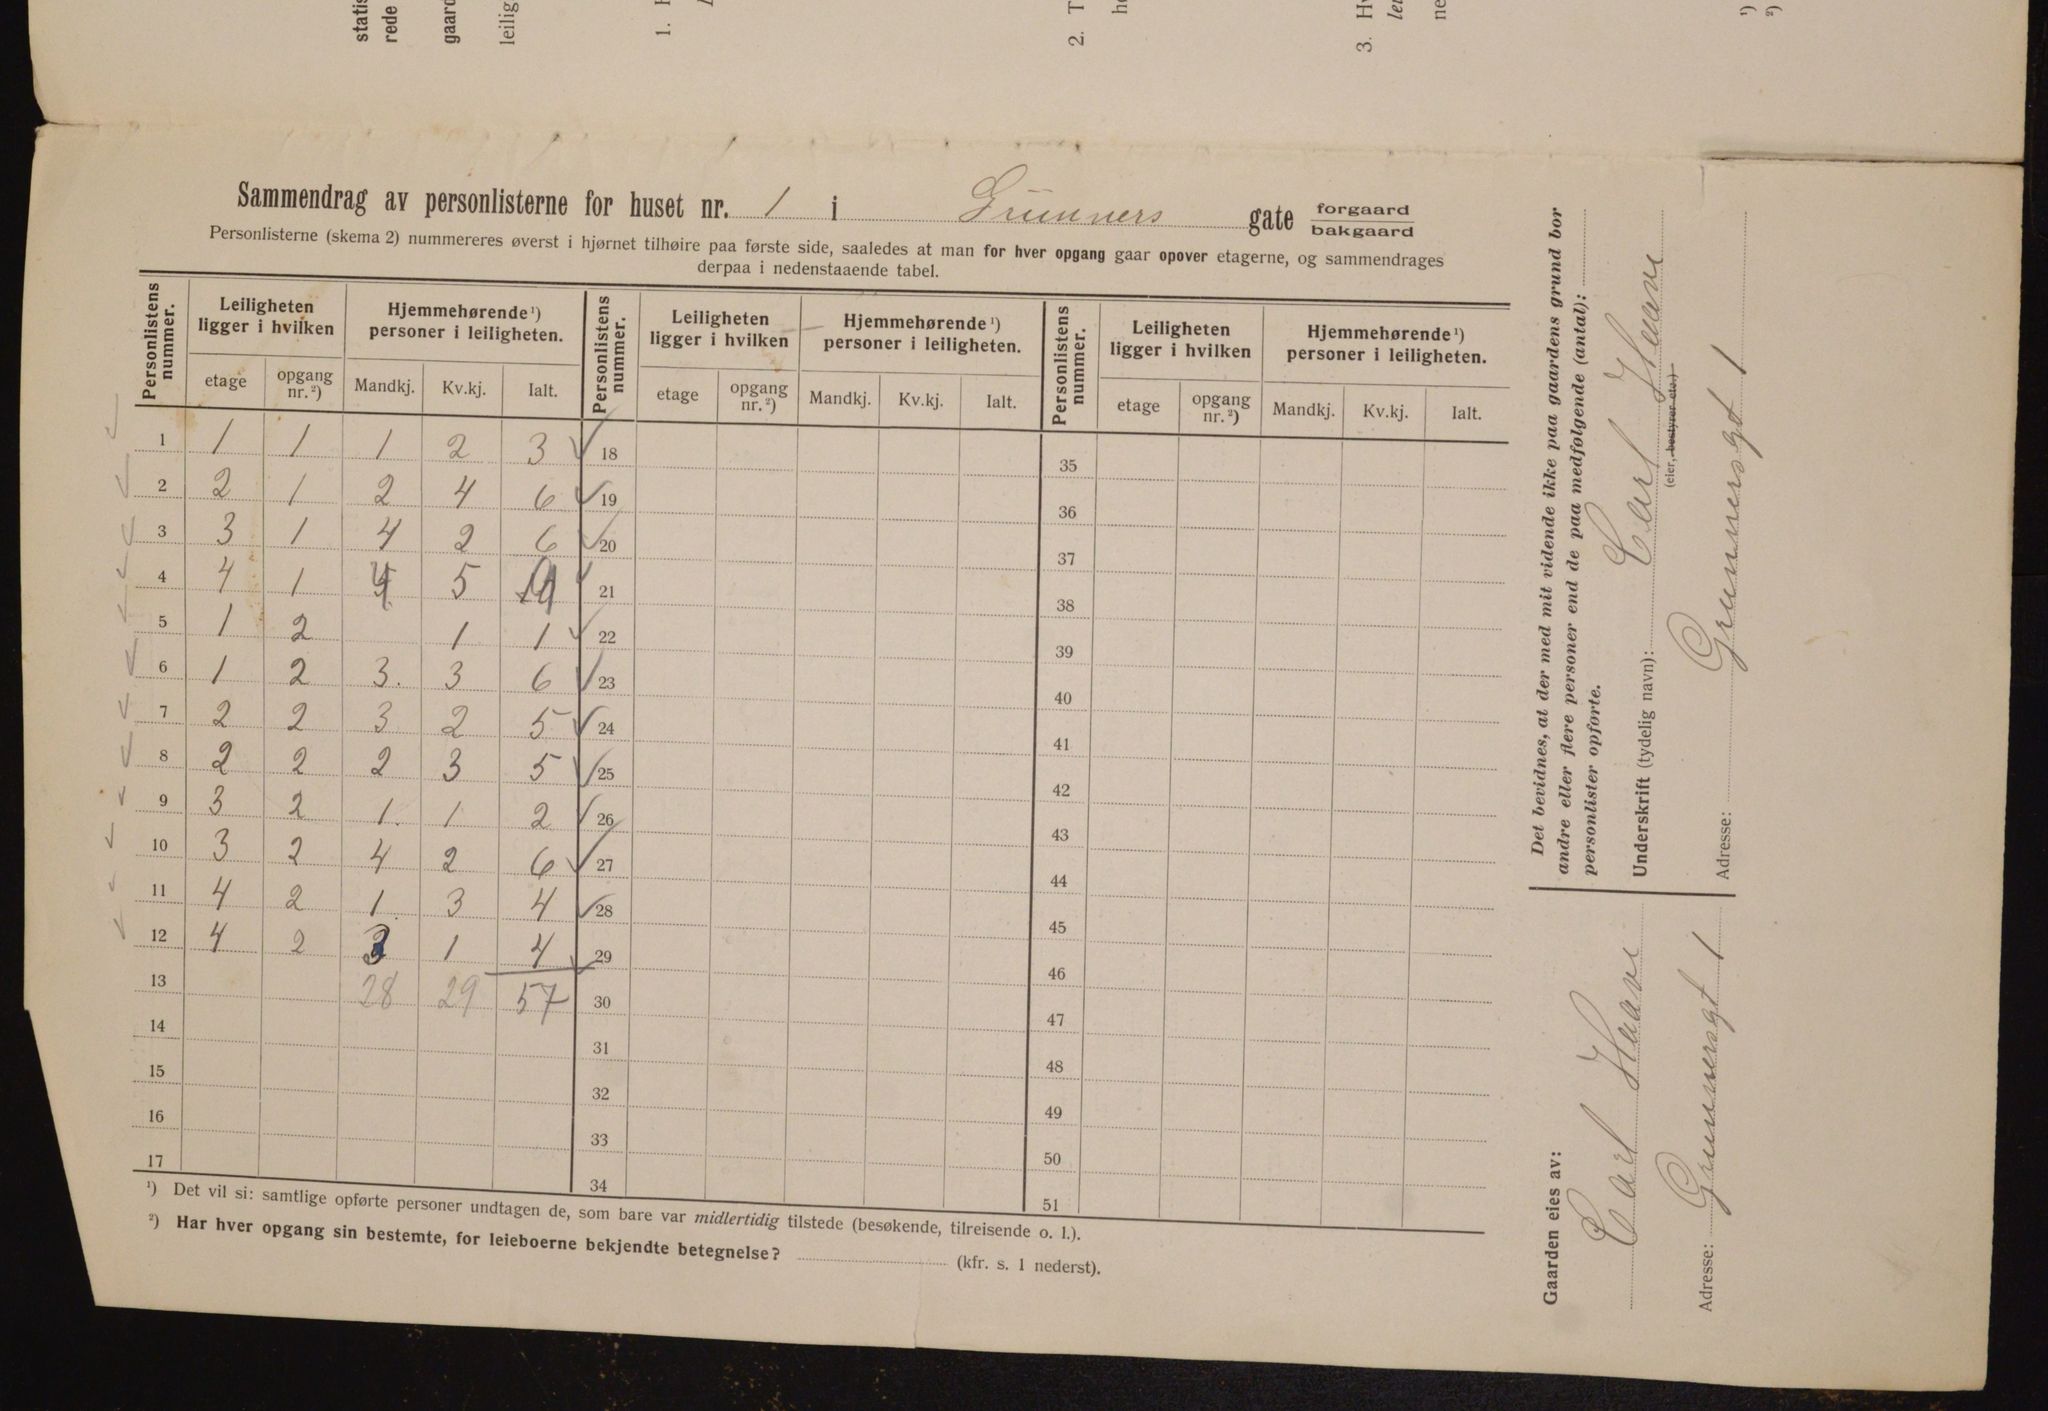 statis
rede
gaard
leilig
1. H
2. T
h
3. Hv
lei
ne
¹)
²)
Sammendrag av personlisterne for huset nr. 1 i Grünners gate forgaard
bakgaard
Personlisterne (skema 2) nummereres øverst i hjørnet tilhøire paa første side, saaledes at man for hver opgang gaar opover etagerne, og sammendrages
derpaa i nedenstaaende tabel.
Personlistens nummer. Leiligheten ligger i hvilken Hjemmehørende¹) personer i leiligheten. Personlistens nummer. Leiligheten ligger i hvilken Hjemmehørende¹) personer i leiligheten. Personlistens nummer. Leiligheten ligger i hvilken Hjemmehørende¹) personer i leiligheten.
etage opgang nr.²) Mandkj. Kv.kj. Ialt. etage opgang nr.²) Mandkj. Kv.kj. Ialt. etage opgang nr.²) Mandkj. Kv.kj. Ialt.
1 1 1 1 2 3 18 35
2 2 1 2 4 6 19 36
3 3 1 4 2 6 20 37
4 4 1 4 5 21 38
5 1 2 1 1 22 39
6 1 2 3. 3 6 23 40
7 2 2 3 2 5 24 41
8 2 2 2 3 5 25 42
9 3 2 1. 1 2 26 43
10 3 2 4 2 6 27 44
11 4 2 1. 3 4 28 45
12 4 2 3 1 4 29 46
13 28 29 57 30 47
14 31 48
15 32 49
16 33 50
17 34 51
¹) Det vil si: samtlige opførte personer undtagen de, som bare var midlertidig tilstede (besøkende, tilreisende o. l.).
²) Har hver opgang sin bestemte, for leieboerne bekjendte betegnelse? (kfr. s. 1 nederst).
Det bevidnes, at der med mit vidende ikke paa gaardens grund bor
andre eller flere personer end de paa medfølgende (antal):
personlister opførte.
Underskrift (tydelig navn): Carl Haave
(eier, bestyrer etc.)
Adresse: Grünnersgt 1
Gaarden eies av:
Carl Haave
Adresse: Grünnersgt 1